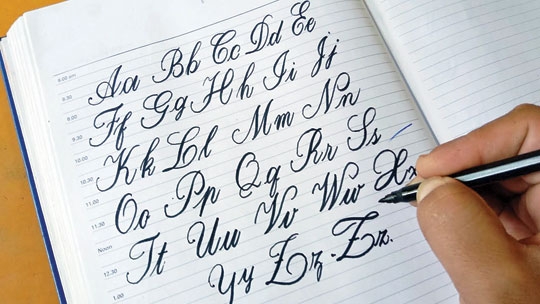 Aa Bb Cc Dd Ee
Ff Gg Hh Ii Jj
Kk Ll Mm Nn
Oo Pp Qq Rr Ss
Tt Uu Vv Ww Xx
Yy Zz . Zz.
8.00 am
8.30
9.00
9.30
10.00
10.30
11.00
11.30
Noon
12.30
1.00